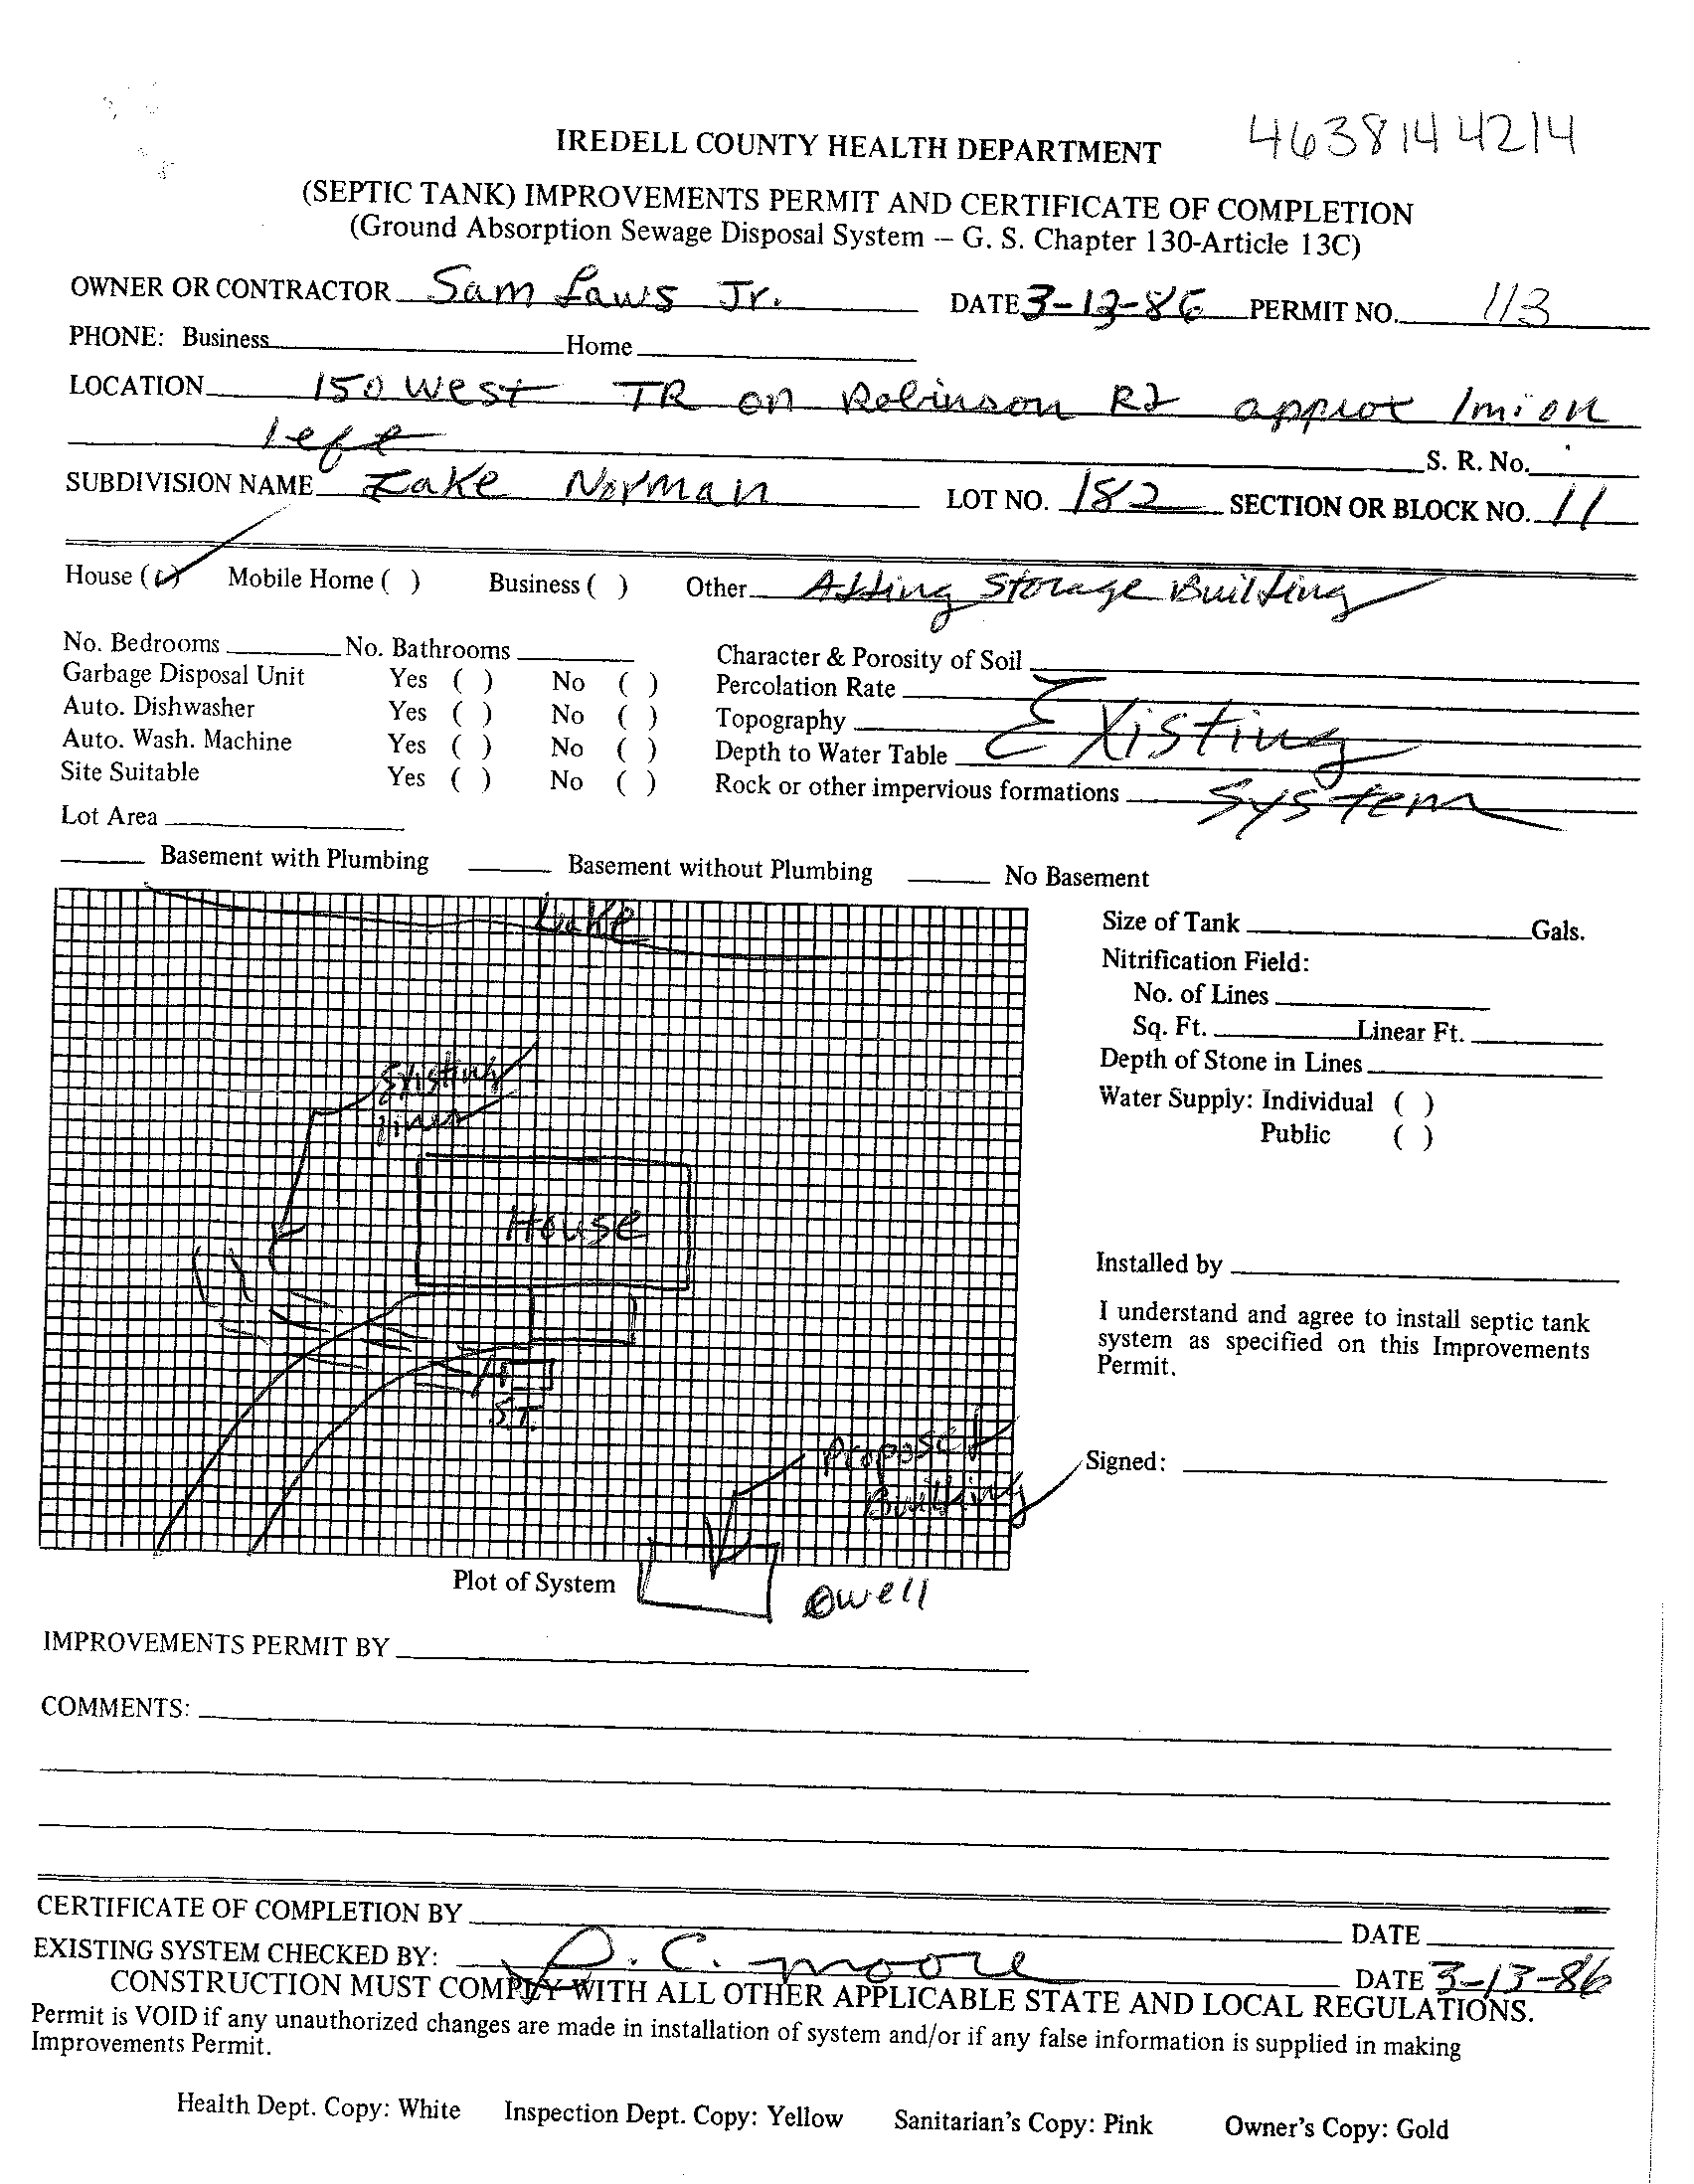 4638144214
IREDELL COUNTY HEALTH DEPARTMENT
(SEPTIC TANK) IMPROVEMENTS PERMIT AND CERTIFICATE OF COMPLETION
(Ground Absorption Sewage Disposal System – G. S. Chapter 130-Article 13C)
OWNER OR CONTRACTOR Sam Laws Jr. DATE 3-13-86 PERMIT NO. 113
PHONE: Business Home
LOCATION 150 West TR on Robinson Rd approx 1 mi on
left
S. R. No.
SUBDIVISION NAME Lake Norman LOT NO. 182 SECTION OR BLOCK NO. 11
House (✓) Mobile Home ( ) Business ( ) Other Adding Storage Building
No. Bedrooms No. Bathrooms Character & Porosity of Soil
Garbage Disposal Unit Yes ( ) No ( ) Percolation Rate
Auto. Dishwasher Yes ( ) No ( ) Topography Existing
Auto. Wash. Machine Yes ( ) No ( ) Depth to Water Table
Site Suitable Yes ( ) No ( ) Rock or other impervious formations System
Lot Area
Basement with Plumbing Basement without Plumbing No Basement
Lake
Existing
lines
House
S.T.
Proposed
Building
Plot of System
well
Size of Tank Gals.
Nitrification Field:
No. of Lines
Sq. Ft. Linear Ft.
Depth of Stone in Lines
Water Supply: Individual ( )
Public ( )
Installed by
I understand and agree to install septic tank
system as specified on this Improvements
Permit.
Signed:
IMPROVEMENTS PERMIT BY
COMMENTS:
CERTIFICATE OF COMPLETION BY DATE
EXISTING SYSTEM CHECKED BY: D. C. Moore DATE 3-13-86
CONSTRUCTION MUST COMPLY WITH ALL OTHER APPLICABLE STATE AND LOCAL REGULATIONS.
Permit is VOID if any unauthorized changes are made in installation of system and/or if any false information is supplied in making
Improvements Permit.
Health Dept. Copy: White Inspection Dept. Copy: Yellow Sanitarian's Copy: Pink Owner's Copy: Gold